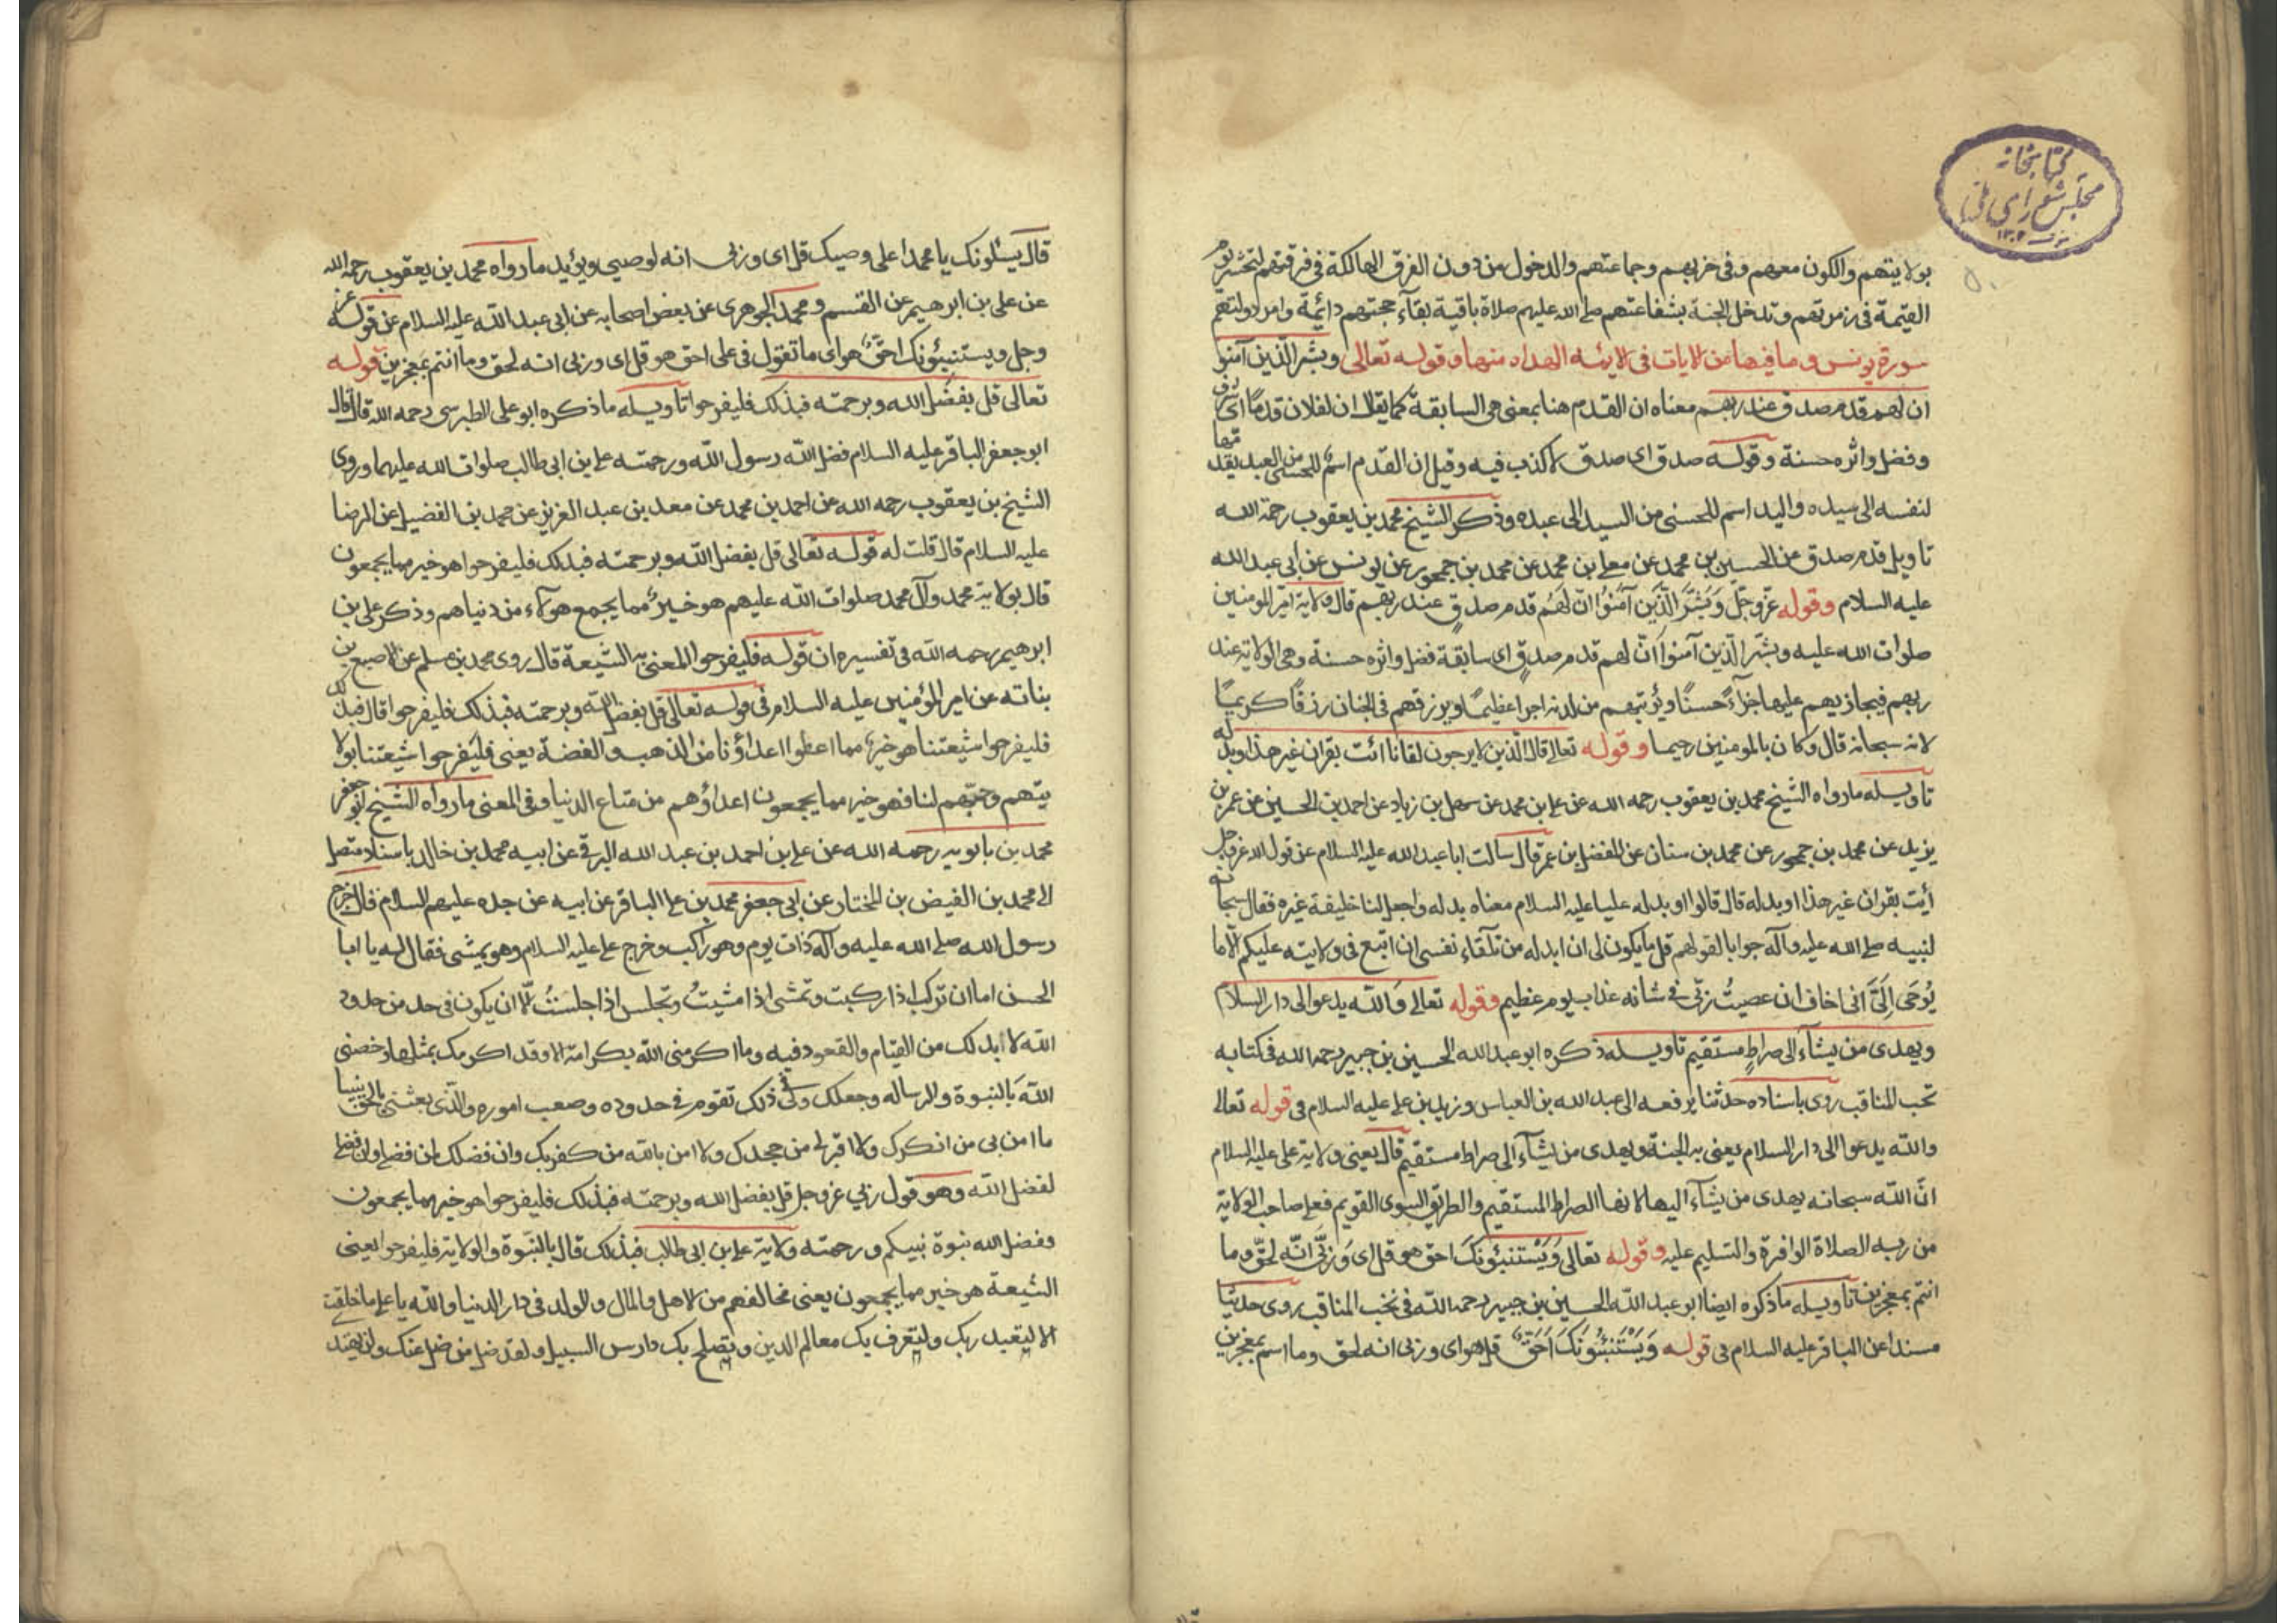 كتابخانه
مجلس شورای ملی
بولايتهم والكون معهم وفى حزبهم وجماعتهم والدخول من دون الفرق الهالكة فى فرقتهم لتحشر يوم
القيمة فى زمرتهم وتدخل الجنة بشفاعتهم صلى الله عليهم صلاة باقية بقاء حجتهم دائمة دوام دولتهم
سورة يونس وما فيها من الايات فى الائمه الهداه منها وقوله تعالى وبشر الذين آمنوا
ان لهم قدم صدق عند ربهم معناه ان القدم هنا بمعنى هى السابقة كما يقال ان لفلان قدما اى شرف
وفضل واثره حسنة وقوله صدق اى صدق لا كذب فيه وقيل ان القدم اسم للحسنى من العبد يقدمها
لنفسه الى سيده واليد اسم للحسنى من السيد الى عبده وذكر الشيخ محمد بن يعقوب رحمة الله
تاويل قدم صدق عن الحسين بن محمد عن معلى بن محمد عن محمد بن جمهور عن يونس عن ابى عبد الله
عليه السلام وقوله عزّ وجلّ وَبَشِّرِ الَّذِين آمَنُوا انّ لَهُم قدم صدقٍ عند ربهم قال ولاية امير المومنين
صلوات الله عليه وبشّر الّذين آمنوا انّ لهم قدم صدقٍ اى سابقة فضل واثره حسنة وهى الولاية عند
ربهم فيجازيهم عليها جزآءً حسنًا ويؤتيهم من لدنه اجرا عظيمًا ويرزقهم فى الجنان رزقًا كريمًا
لانه سبحانه قال وكان بالمومنين رحيما وقوله تعالى قال الّذين لا يرجون لقانا ائت بقران غير هذا او بدله
تاويله ما رواه الشيخ محمد بن يعقوب رحمه الله عن على بن محمد عن سهل بن زياد عن احمد بن الحسين عن عمر بن
يزيد عن محمد بن جمهور عن محمد بن سنان عن المفضل بن عمر قال سالت ابا عبد الله عليه السلام عن قول الله عز وجل
أيت بقران غير هذا او بدله قال قالوا او بدله عليا عليه السلام معناه بدله واجعل لنا خليفة غيره فقال سبحانه
لنبيه صلى الله عليه وآله جوابا لقولهم قل ما يكون لى ان ابدله من تلقاء نفسى ان اتبع فى ولايته عليكم الّا ما
يُوحَى اِلَىَّ انى اخاف ان عصيتُ ربّى فى شانه عذاب يوم عظيم وقوله تعالى وَاللّه يدعوا الى دار السلام
ويهدى من يشآء الى صراطٍ مستقيم تاويله ذكره ابو عبد الله الحسين بن جبير رحمه الله فى كتابه
نخب المناقب روى باسناده حدثنا يرفعه الى عبد الله بن العباس وزيد بن على عليه السلام فى قوله تعالى
والله يدعوا الى دار السلام يعنى به الجنة ويهدى من يشآء الى صراط مستقيم قال يعنى ولاية على عليه السلام
انّ اللّه سبحانه يهدى من يشآء اليها لانها الصراط المستقيم والطريق السوى القويم فعلى صاحب الولاية
من ربه الصلاة الوافرة والتسليم عليه وقوله تعالى وَيَسْتَنبئونَكَ احق هو قل اى وَربّى انّه لحقّ وما
انتم بمعجزين تاويله ما ذكره ايضا ابو عبد اللّه الحسين بن جبير رحمه اللّه فى نخب المناقب روى حديثا
مسندا عن الباقر عليه السلام فى قوله وَيَسْتَنبئونَكَ اَحَقّ هو قل اى وربى انه لحق وما انتم بمعجزين
قال يسئلونك يا محمد اعلى وصيك قل اى وربى انه لوصيى ويؤيد ما رواه محمد بن يعقوب رحمه الله
عن على بن ابرهيم عن القسم و محمد الجوهرى عن بعض اصحابه عن ابى عبد اللّه عليه السلام عن قوله عز
وجل ويستنبئونك احقّ هو اى ما تقول فى على احق هو قل اى وربى انه لحق وما انتم بمعجزين قوله
تعالى قل بفضل الله وبرحمته فبذلك فليفرحوا تاويله ما ذكره ابو على الطبرسى رحمه الله قال قال
ابو جعفر الباقر عليه السلام فضل اللّه رسول اللّه ورحمته على بن ابى طالب صلوات الله عليهما وروى
الشيخ بن يعقوب رحمه الله عن احمد بن محمد عن معد بن عبد العزيز عن محمد بن الفضيل عن الرضا
عليه السلام قال قلت له قوله تعالى قل بفضل اللّه وبرحمته فبذلك فليفرحوا هو خير مما يجمعون
قال بولاية محمد وآل محمد صلوات اللّه عليهم هو خيرٌ مما يجمع هؤلاء من دنياهم وذكر على بن
ابرهيم رحمه اللّه فى تفسيره ان قوله فليفرحوا المعنى به الشيعة قال روى محمد بن مسلم عن الاصبغ بن
نباته عن امير المؤمنين عليه السلام فى قوله تعالى قل بفضل اللّه وبرحمته فبذلك فليفرحوا قال فبذلك
فليفرحوا شيعتنا هو خير مما اعطوا اعداؤنا من الذهب والفضة يعنى فليفرحوا شيعتنا بولا
يتهم وحبّهم لنا فهو خير مما يجمعون اعداؤهم من متاع الدنيا وفى المعنى ما رواه الشيخ ابو جعفر
محمد بن بابويه رحمه الله عن على بن احمد بن عبد الله البرقى عن ابيه محمد بن خالد باسناد متصل
الى محمد بن الفيض بن المختار عن ابى جعفر محمد بن على الباقر عن ابيه عن جده عليهم السلام قال خرج
رسول الله صلى الله عليه وآله ذات يوم وهو راكب وخرج على عليه السلام وهو يمشى فقال له يا ابا
الحسن اما ان تركب اذا ركبت وتمشى اذا مشيتُ وتجلس اذا جلستُ الّا ان يكون فى حد من حدود
اللّه لا بد لك من القيام والقعود فيه وما اكرمنى اللّه بكرامة الا وقد اكرمك بمثلها وخصنى
اللّه بالنبوة والرساله وجعلك وليى فى ذلك تقوم فى حدوده وصعب اموره والّذى بعثنى بالحق نبيا
ما امن بى من انكرك ولا اقرّ بى من جحدك ولا امن باللّه من كفر بك وان فضلك لمن فضلى وان فضلى
لفضل اللّه وهو قول ربى عز وجل قل بفضل الله وبرحمته فبذلك فليفرحوا هو خير مما يجمعون
وفضل الله نبوة نبيكم ورحمته ولاية على بن ابى طالب فبذلك قال بالنبّوة والولاية فليفرحوا يعنى
الشيعة هو خير مما يجمعون يعنى مخالفهم من الاهل والمال والولد فى دار الدنيا والله يا على ما خلقت
الا ليعبد ربك وليعرف بك معالم الدين ويصلح بك دارس السبيل ولقد ضل من ضل عنك ولن يهتد